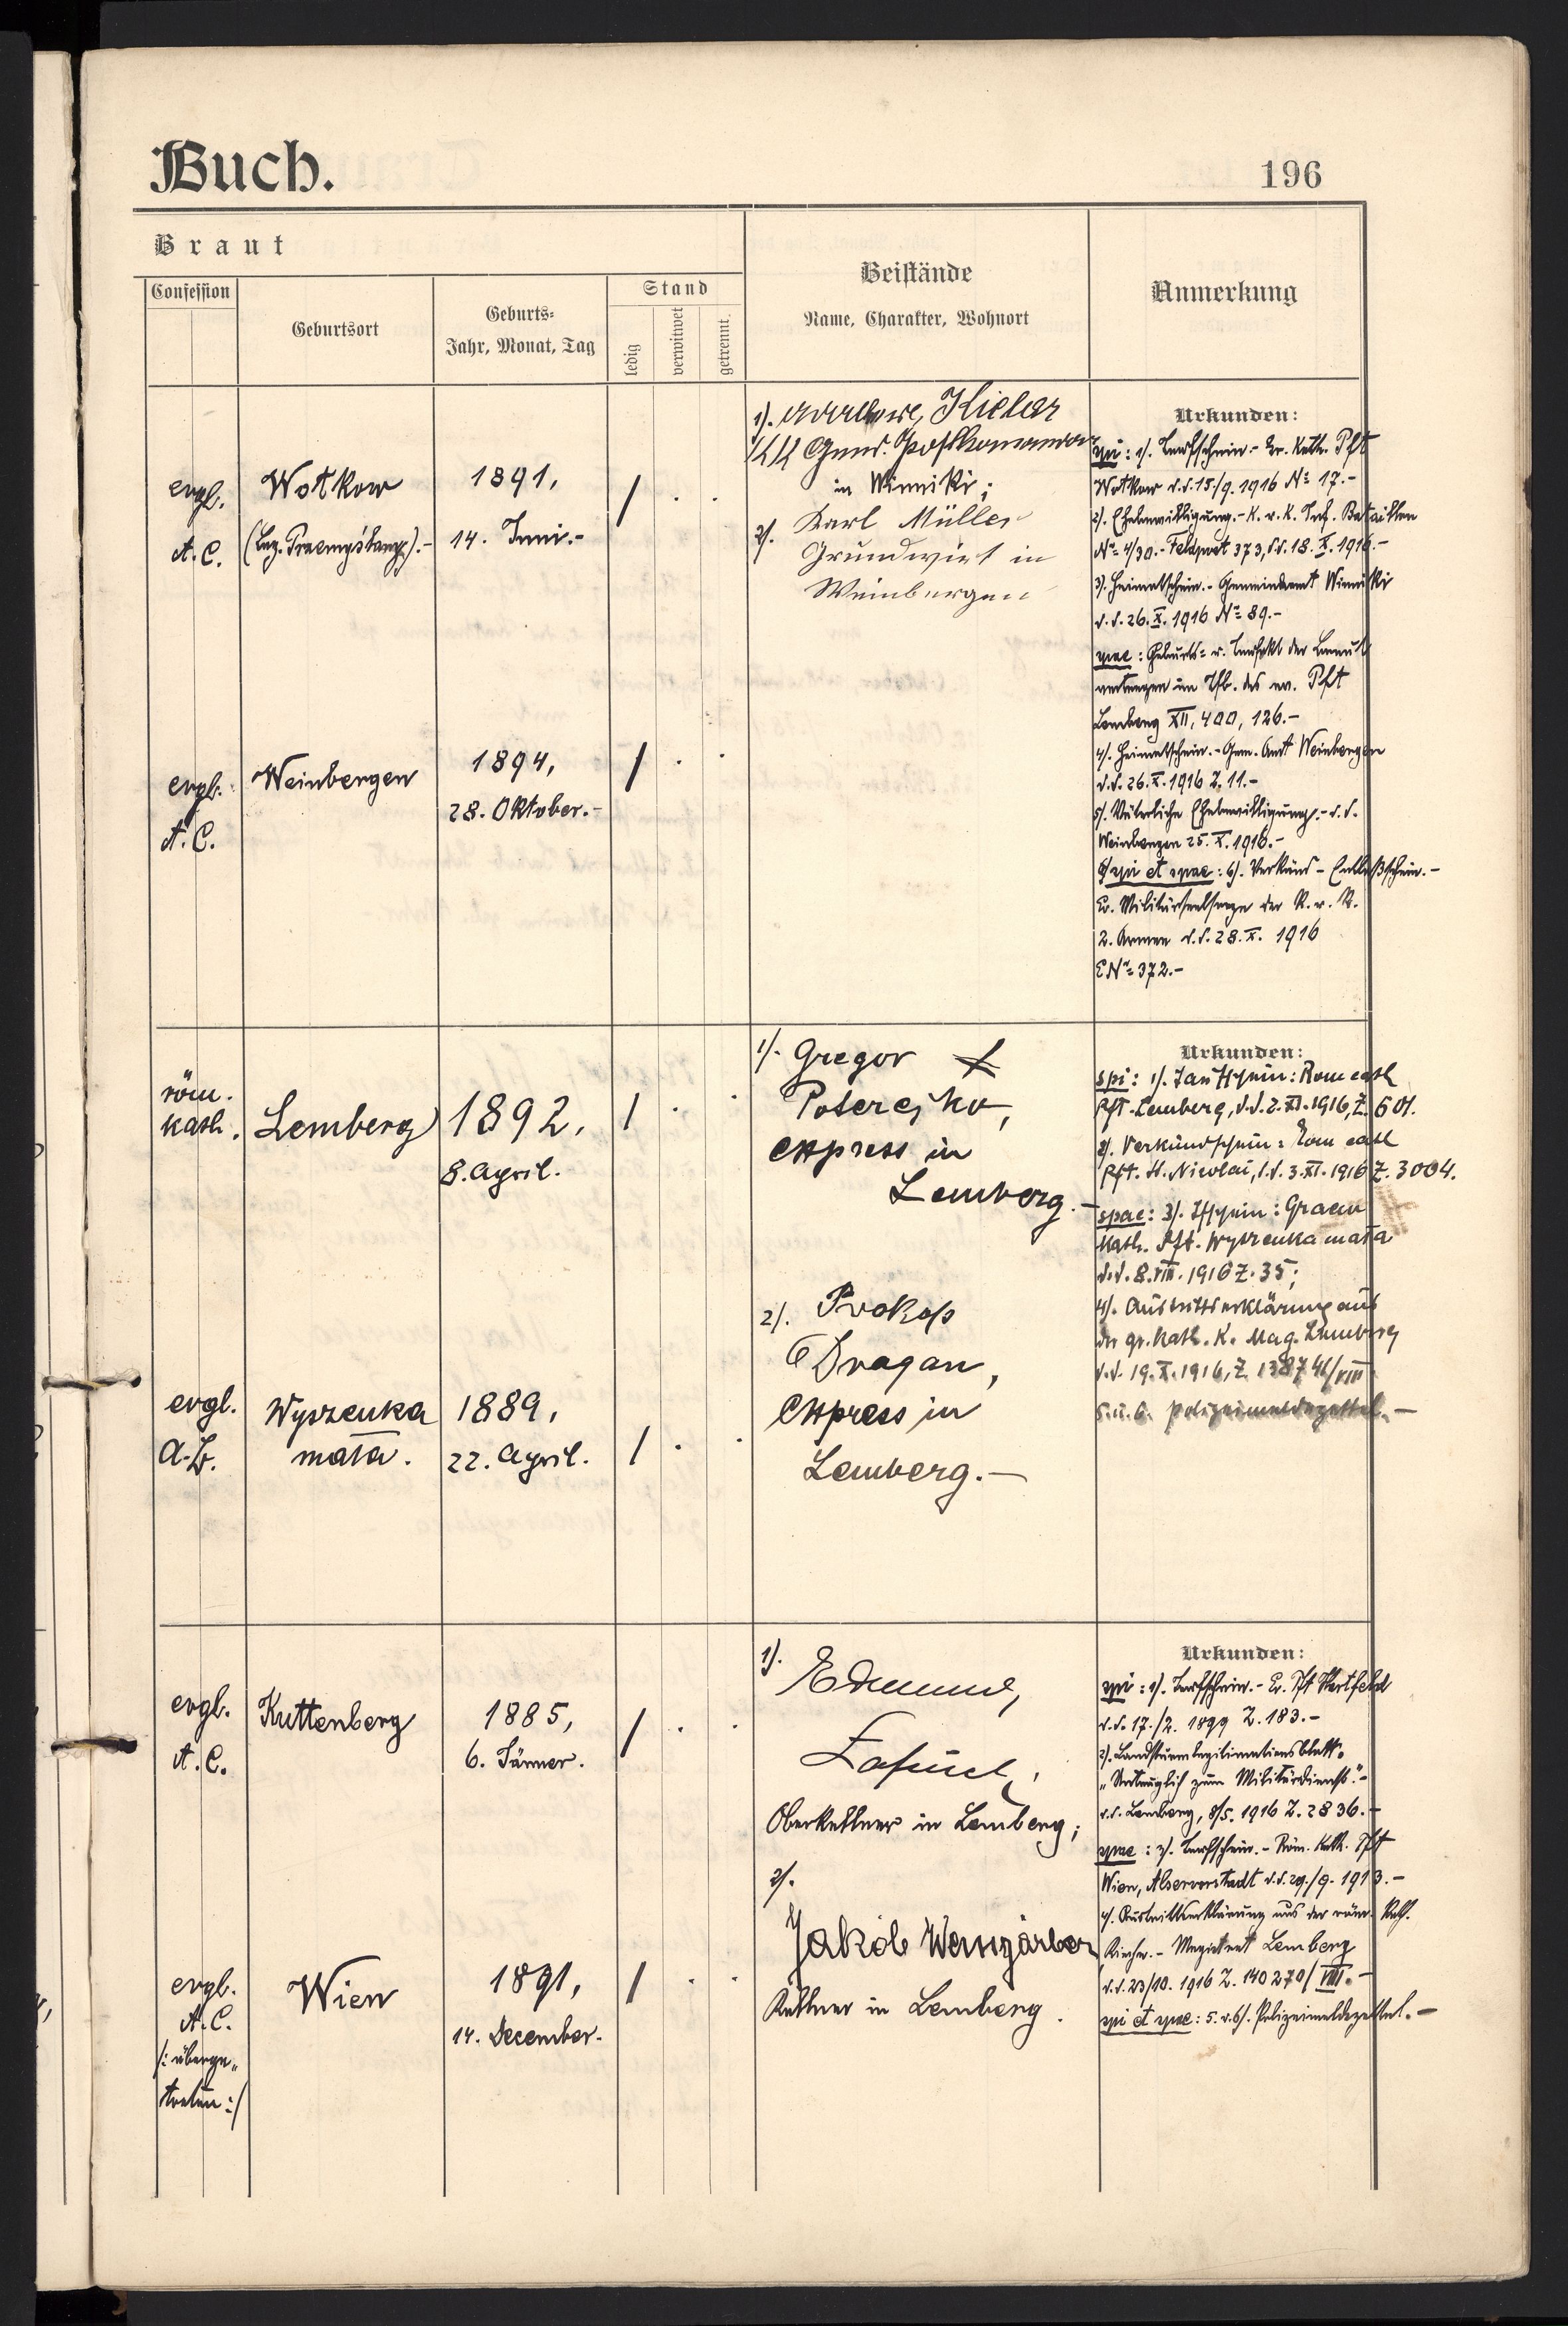 Buch.
196
Braut
Confession
Geburtsort
Geburts-
Jahr, Monat, Tag
Stand
ledig
verwitwet
getrennt.
Beistände
Name, Charakter, Wohnort
Anmerkung
evgl.
A. C.
Wotkow
1891,
14. Juni.-
/ . .
1). Kieler
in Winniki;
2). Karl Müller
Grundwirt in
Weinbergen
Urkunden:
spi: 1). Taufschein.- Ev. Kath. Pft
Wotkow d.d. 15./9. 1916 No 17.-
2). Ehebewilligung.- K. u. K. Inf. Bataillon
No 4/30.- Feldpost 373, d.d. 18. X. 1916.-
3). Heimatschein.- Gemeindeamt Winniki
d.d. 26. X. 1916 No 89.-
spae: Geburts= u. Taufakt der Braut
im Tfb. des ev. Pft
Lemberg XII, 400, 126.-
4). Heimatschein.- Gem. Amt Weinbergen
d.d. 26. X. 1916 Z. 11.-
5). Väterliche Ehebewilligung.- d.d.
Weinbergen 25. X. 1916.-
spi et spae: 6). Verkünd- Entlaßschein.-
Ev. Militärseelsorge der K. u. K.
2. Armee d.d. 28. X. 1916
E No 372.-
evgl.
A. C.
Weinbergen
1894,
28. Oktober.-
/ . .
röm.
kath.
Lemberg
1892,
8. April.
/ . .
1). Gregor
Poterejko,
Express in
Lemberg.-
2). Prokop
Dragan,
Express in
Lemberg.-
Urkunden:
spi: 1). Taufschein: Rom cath
Pft. Lemberg, d.d. 2. XI. 1916, Z. 601.
2). Verkündschein: Rom cath
Pft. St. Nicolai, d.d. 3. XI. 1916 Z. 3004.
spae: 3). Tfschein: Graeco
Kath. Pft. Wyszenka mała
d.d. 8. VIII. 1916 Z. 35;
4). Austrittserklärung aus
der gr. kath. K. Mag. Lemberg
d.d. 19. X. 1916, Z. 138746/VIII
5. u. 6. Polizeimeldezettel.-
evgl.
A. B.
Wyszenka
mała.
1889,
22. April.
/ . .
evgl.
A. C.
Kuttenberg
1885,
6. Jänner.
/ . .
1).
Edmund,
Oberkellner in Lemberg;
2).
Jakob Weissgärber
Kellner in Lemberg.
Urkunden:
spi: 1). Taufschein.- Ev. Pft Hartfeld
d.d. 17./2. 1899 Z. 183.-
2). Landsturmlegitimationsblatt.
"Untauglich zum Militärdienst."-
d.d. Lemberg, 8/5. 1916 Z. 2836.-
spae: 3). Taufschein.- Röm. Kath. Pft
Wien, Alservorstadt d.d. 29./9. 1913.-
4). Austrittserklärung aus der röm. Kath.
Kirche.- Magistrat Lemberg
d.d. 23/10. 1916 Z. 140270/VIII.-
spi et spae: 5. u. 6). Polizeimeldezettel.-
evgl.
A. C.
/: überge„
treten :/
Wien
1891,
14. December.
/ . .